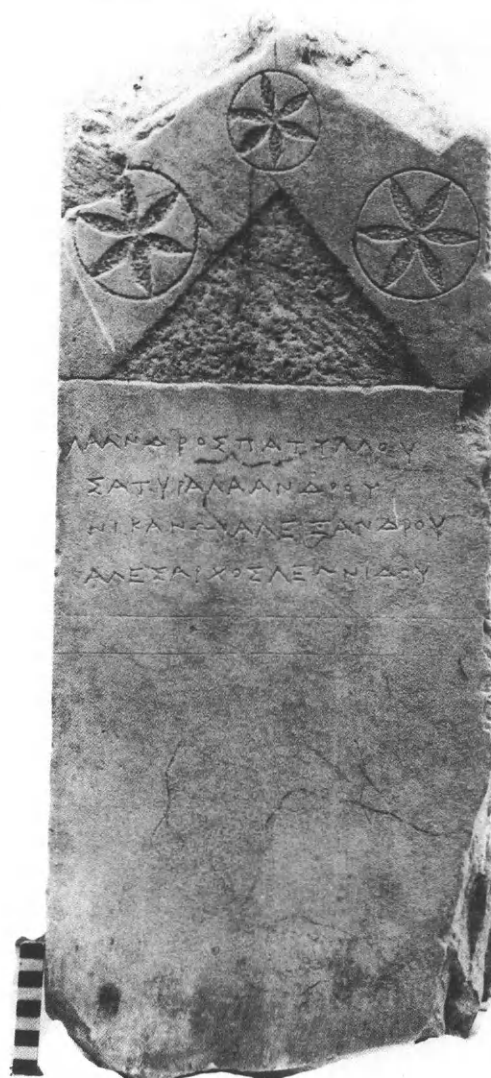 ΛΑΑΝΔΡΟΣΠΑΤΥΛΛΟΥ
ΣΑΤΥΡΑΛΑΑΝΔΡΟΥ
ΝΙΚΑΝΩΡΑΛΕΞΑΝΔΡΟΥ
ΑΛΕΞΑΡΧΟΣΛΕΩΝΙΔΟΥ